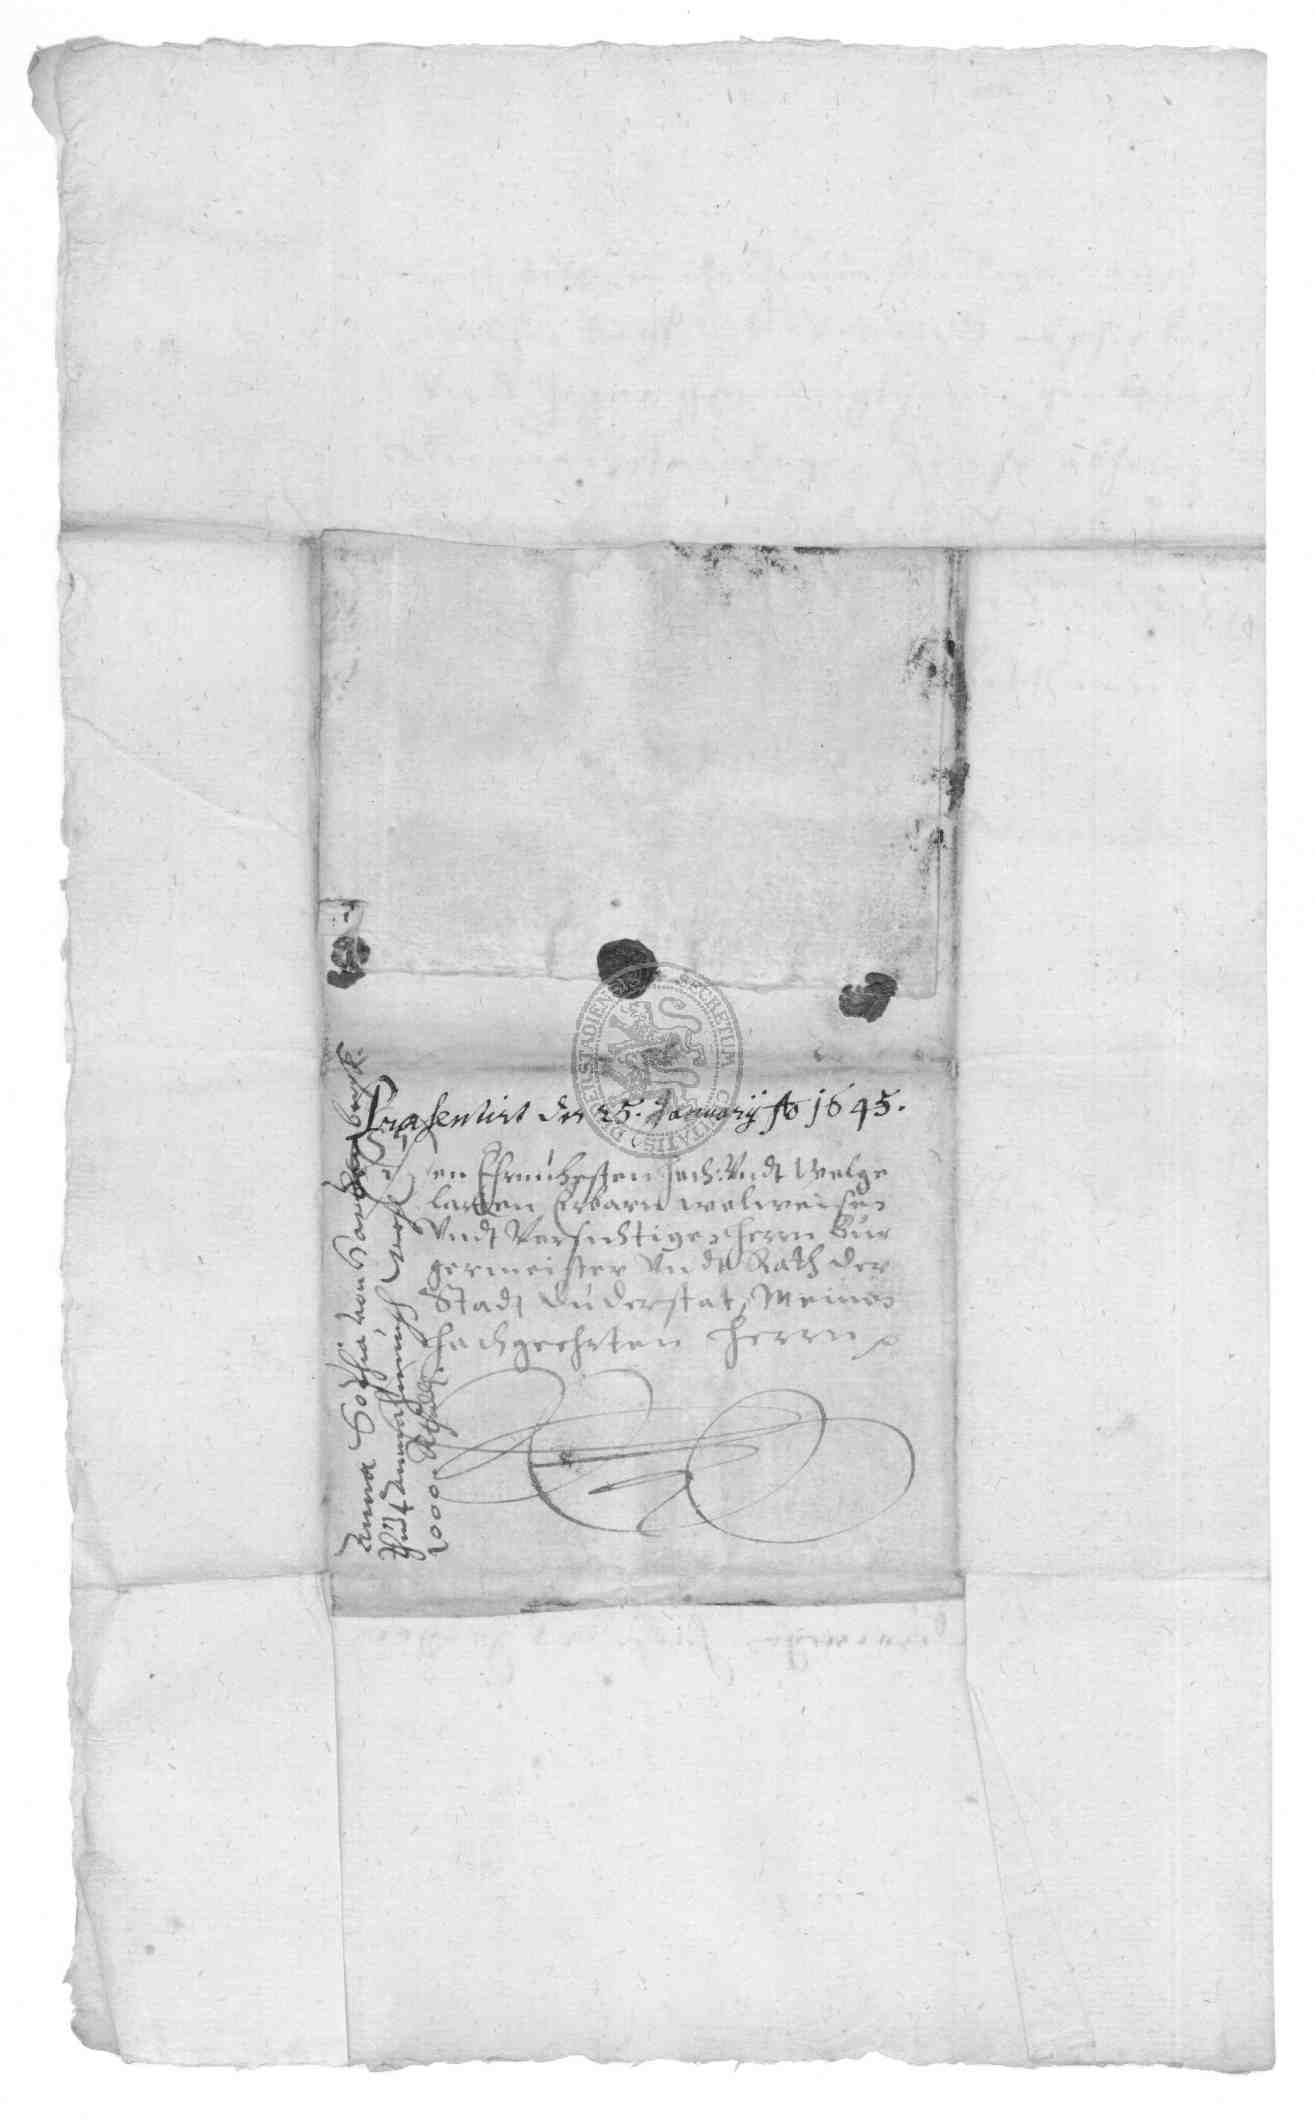 Præsentirt den 25. Januarij Ao 1645.
Den Ehrnuhesten hoch: Undt Wolge
larten Erbarn wolweisen
Undt Versichtigen Herrn Bur
germeister Undt Rath der
Stadt Duderstat, Meinen
hochgeehrten Herrn
Anna Sophia von
2000 Rthlr
SECRETUM CIVITATIS DUDERSTADIENSIS